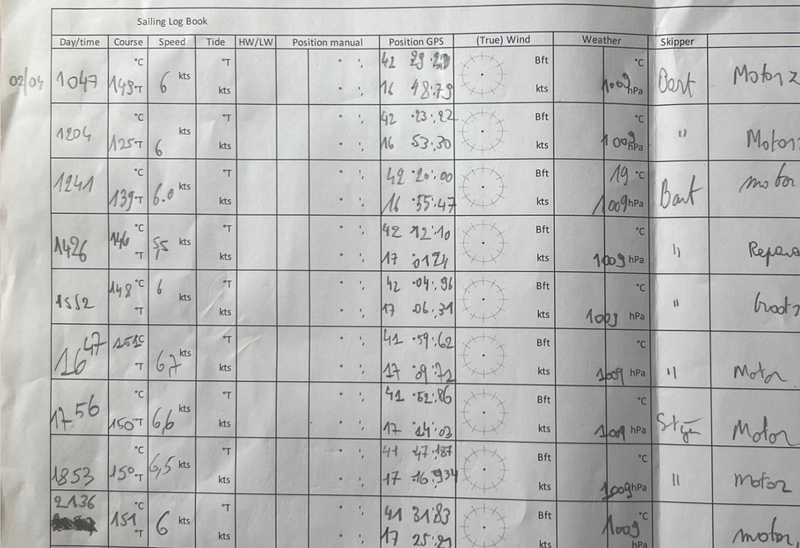 Sailing Log Book
Day/time Course Speed Tide HW/LW Position manual Position GPS (True) Wind Weather Skipper
02/04 1047 °C 149 T 6 kts °T kts 42 29.29 16 48.79 Bft kts °C 1009 hPa Bart Motor
1204 °C 125 T 6 kts °T kts 42 23.22 16 53.30 Bft kts °C 1009 hPa " Motor
1241 °C 139 T 6.0 kts °T kts 42 20.00 16 55.47 Bft kts 19 °C 1009 hPa Bart motor
1426 °C 146 T 5,5 kts °T kts 42 12.10 17 .0124 Bft kts °C 1009 hPa "
1552 148 °C T 6 kts °T kts 42 .04.96 17 .06.31 Bft kts °C 1009 hPa "
1647 151 °C T 6,7 kts °T kts 41 .59.62 17 .09.72 Bft kts °C 1009 hPa " Motor
1756 °C 150 T 6,6 kts °T kts 41 .52.86 17 .14.03 Bft kts °C 1009 hPa Motor
1853 °C 150 T 6,5 kts °T kts 41 47.187 17 16.934 Bft kts °C 1009 hPa " motor
2136 °C 151 T 6 kts °T kts 41 31.83 17 25.21 Bft kts °C 1009 hPa motor,